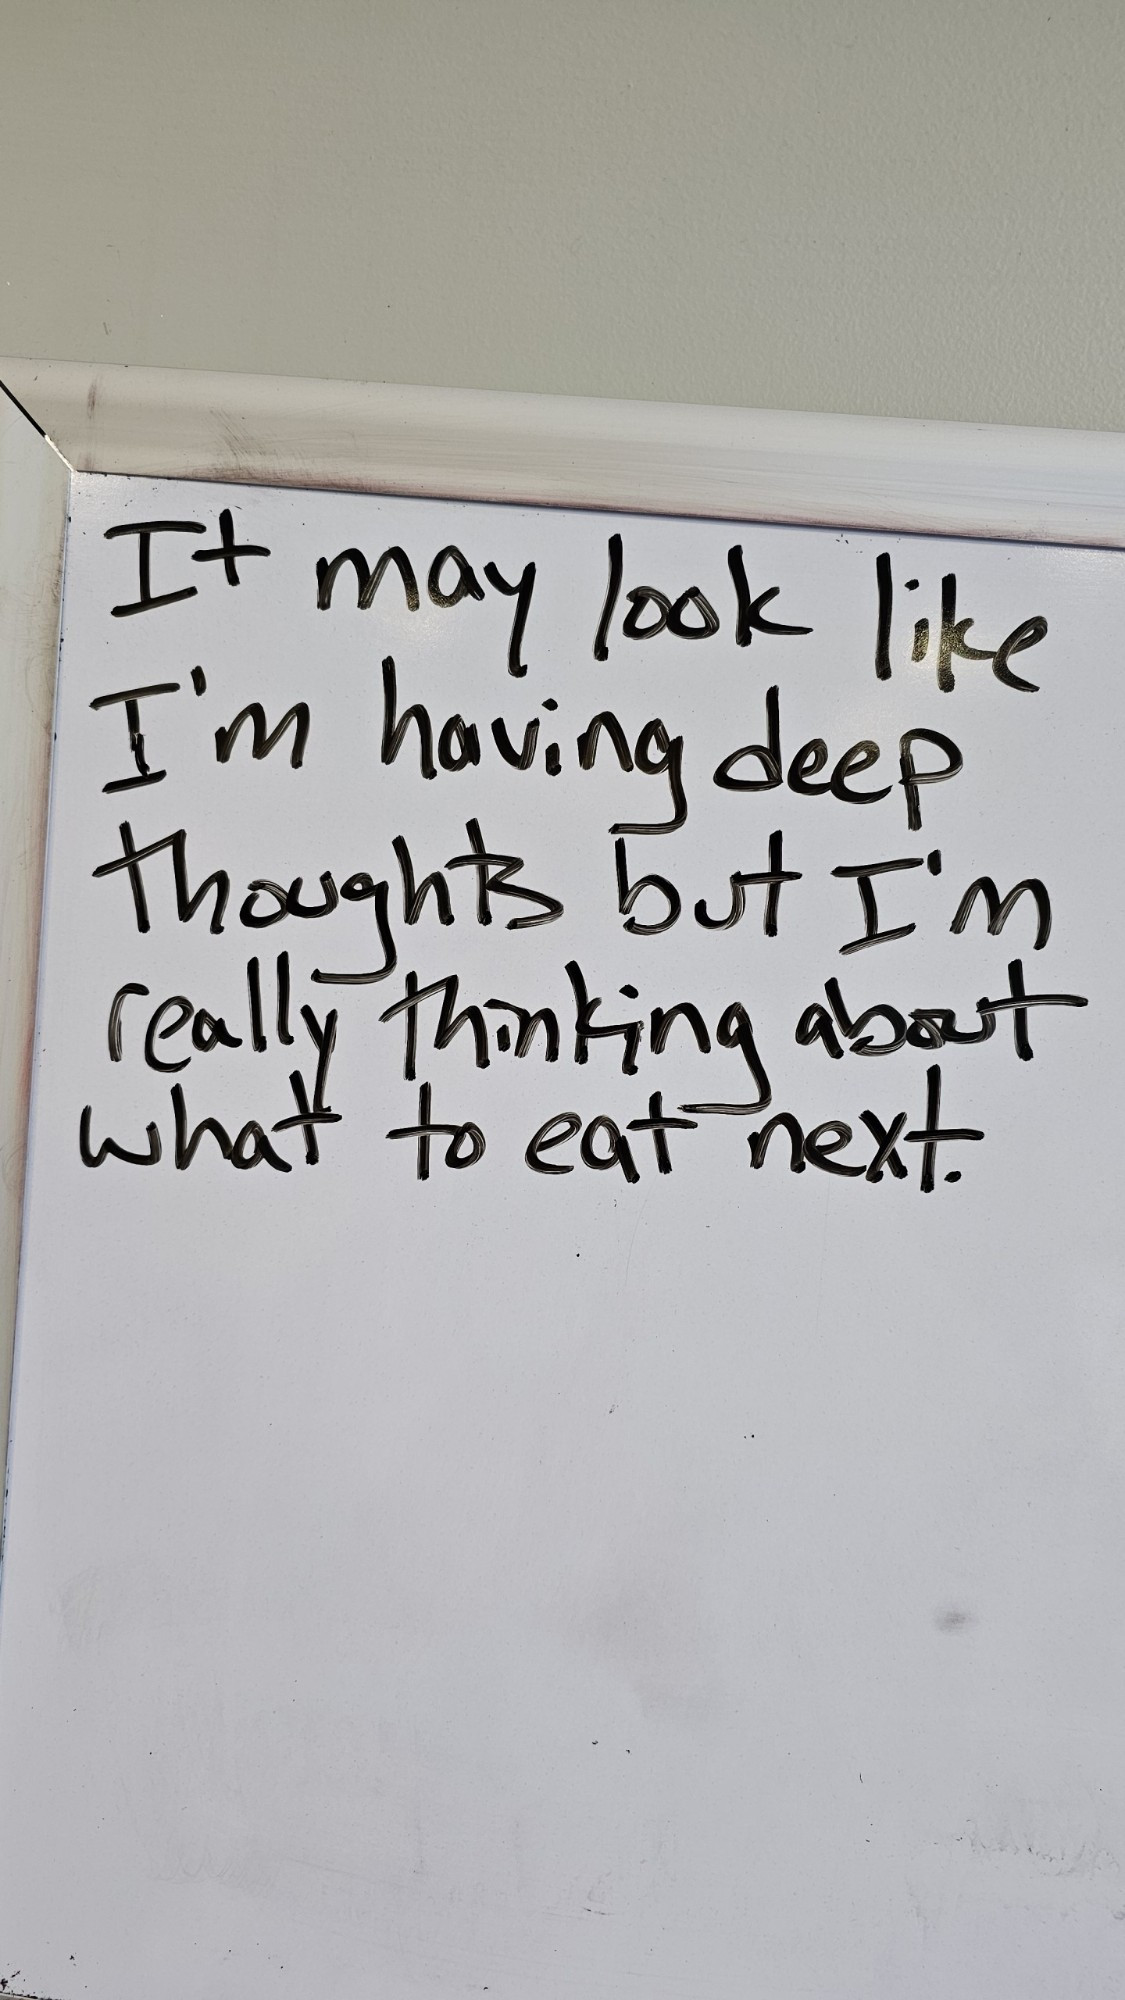 It may look like
I'm having deep
thoughts but I'm
really thinking about
what to eat next.